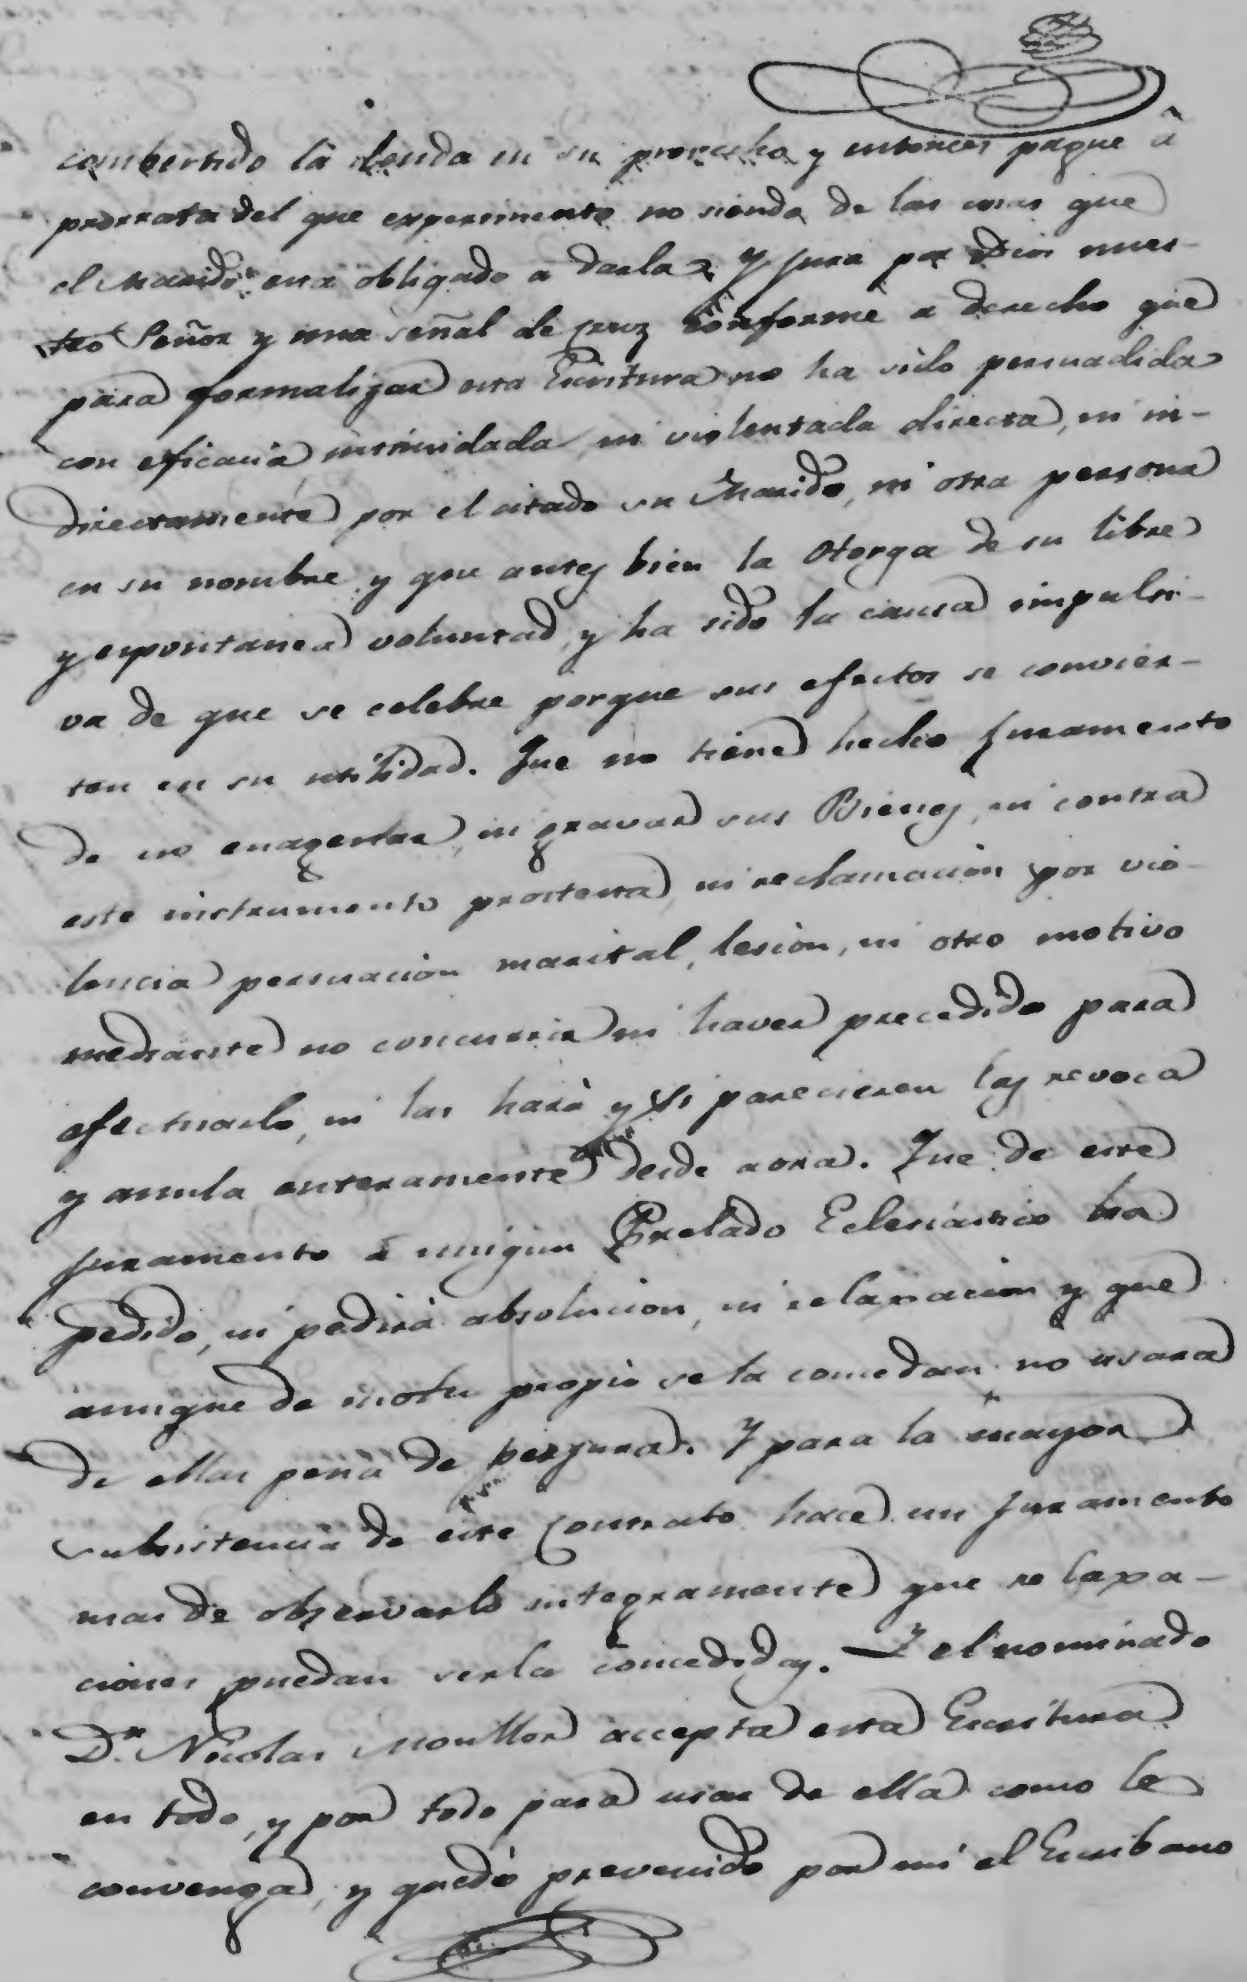 combertido la deuda en su provecho, y entonces pague â
prorrata del que experimente no siendo de las cosas que
el Marido era obligado a darla. Y jura por Dios nues-
tro Señor y una señal de cruz conforme a derecho que
para formalizar esta Escritura no ha sido persuadida
con eficacia intimidada ni violentada directa, ni in-
directamente por el citado su Marido, ni otra persona
en su nombre y que antes bien la otorga de su libre
y espontanea voluntad, y ha sido la causa impulsi-
va de que se celebre porque sus efectos se convier-
ten en su utilidad. Que no tiene hecho juramento
de no enagenar, ni gravar sus Bienes, ni contra
este instrumento protesta, ni reclamacion por vio-
lencia persuacion marital, lesion, ni otro motivo
mediante no concurrir ni haver precedido para
efectuarlo, ni las harà y si parecieren las revoca
y anula enteramente desde aora. Que de este
juramento a ningun Prelado Eclesiástico ha
pedido, ni pedirà absolucion, ni relaxacion y que
aunque de motu propio se la concedan no usara
de ellas pena de perjura. Y para la mayor
subsistencia de este Contrato hace un juramento
mas de observarlo integramente que relaxa-
ciones puedan serla concedidas. Y el nominado
Dn. Nicolas Moullor accepta esta Escritura
en todo, y por todo para usar de ella como le
convenga, y quedò prevenido por mi el Escribano